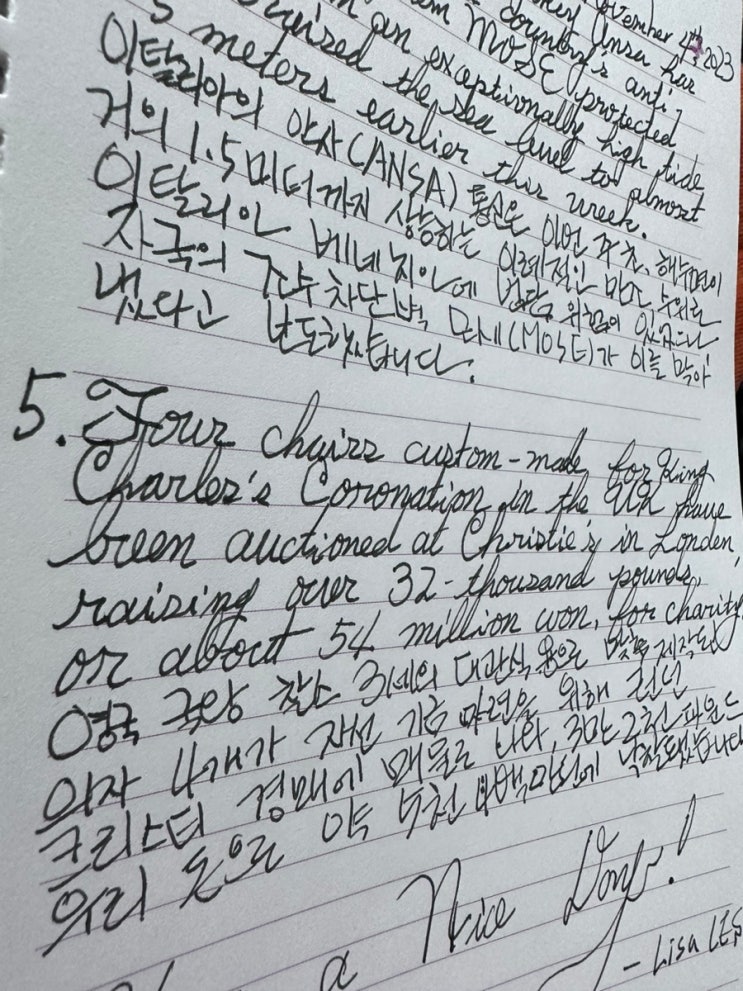 November 4th, 2023
Ansa has
country's anti
MOSE protected
an exceptionally high tide
raised the sea level to almost
5 meters earlier this week.
이탈리아의 안사(ANSA) 통신은 이번 주 초, 해수면이
거의 1.5미터까지 상승하는 이례적인 만조 수위로
이탈리아 베네치아에 범람 위험이 있었으나
자국의 조수 차단벽 모세(MOSE)가 이를 막아
냈다고 보도했습니다.
5. Four chairs custom-made for King
Charles's Coronation in the UK have
been auctioned at Christie's in London,
raising over 32-thousand pounds,
or about 54 million won, for charity.
영국 국왕 찰스 3세의 대관식 용으로 맞춤 제작된
의자 4개가 자선 기금 마련을 위해 런던
크리스티 경매에 매물로 나와, 3만 2천 파운드
우리 돈으로 약 5천 4백만원에 낙찰됐습니다
a Nice Day!
- Lisa LES